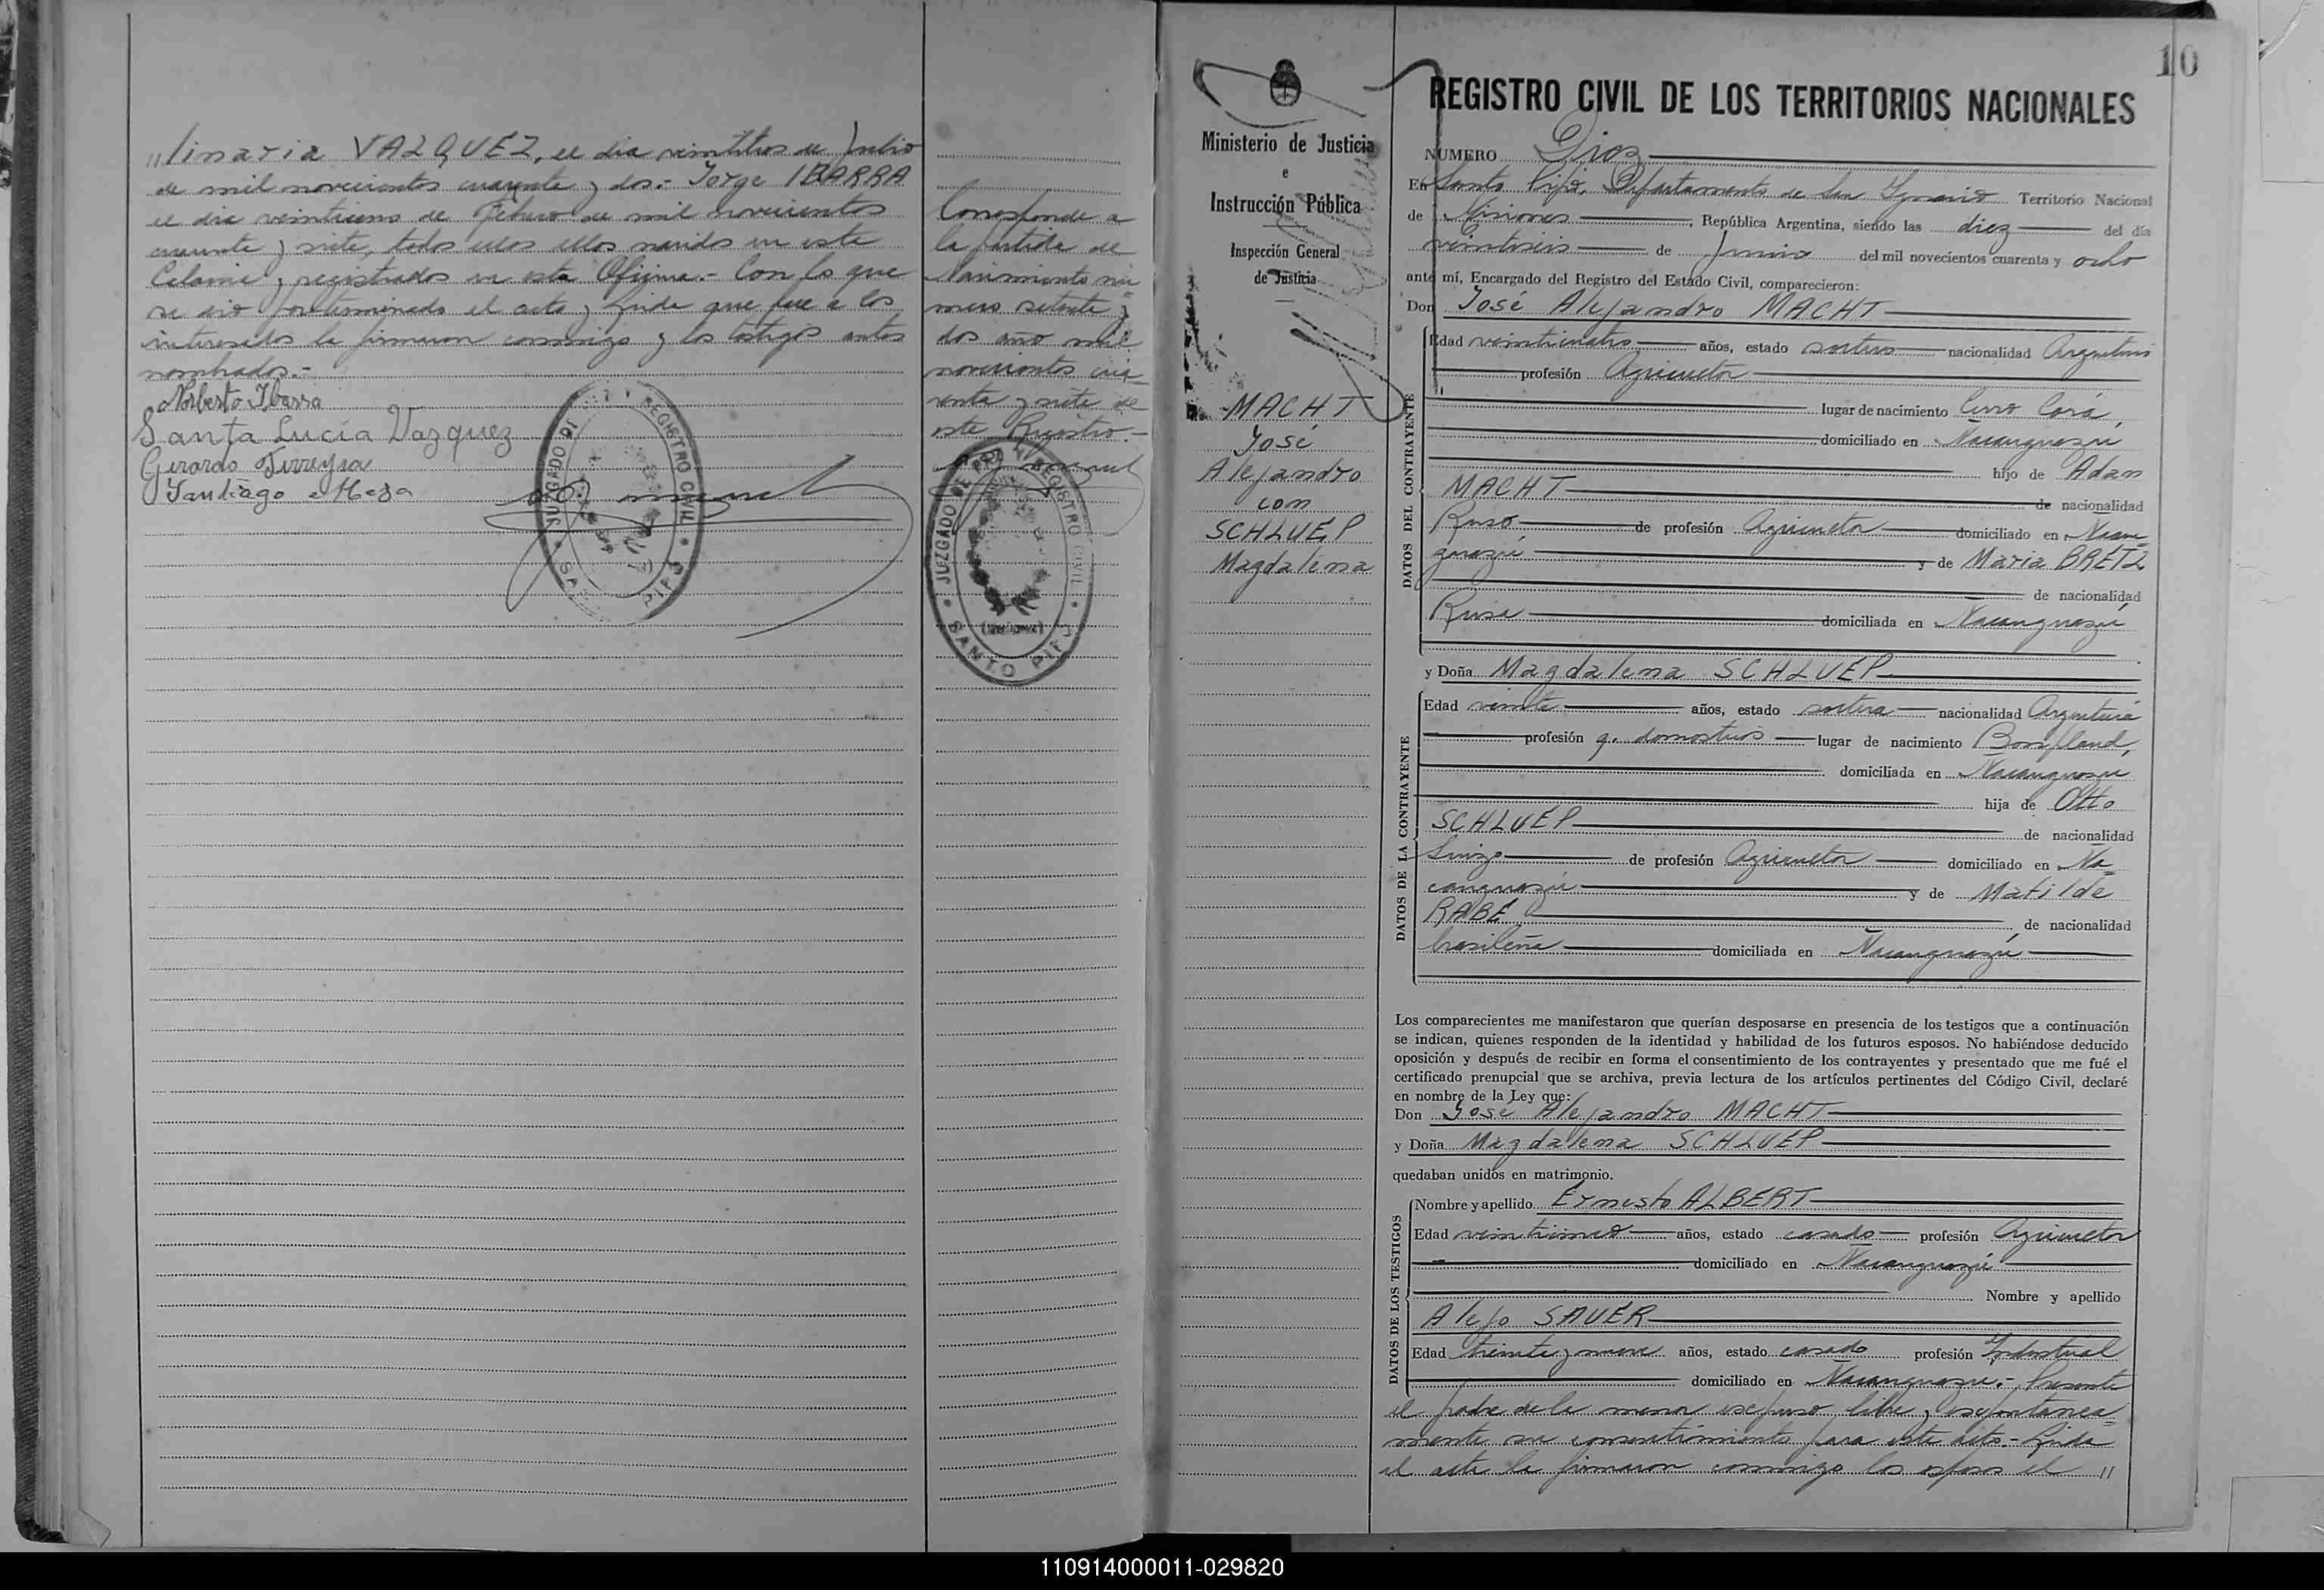 //linaria VAZQUEZ, el dia veintitres de Julio
de mil novecientos cuarenta y dos.- Jorge IBARRA
el dia veintiseno de Febrero de mil novecientos
cuarenta y siete, todos ellos nacidos en esta
Colonia y registrados en esta Oficina.- Con lo que
se dió por terminado el acto y leida que fue a los
interesados la firmaron conmigo y los testigos antes
nombrados.-
Norberto Ibarra
Santa Lucía Vazquez
Gerardo Ferreyra
Santiago Meza
JUZGADO DE REGISTRO CIVIL
SANTO PIPÓ
Corresponde a
la partida de
Nacimiento nú=
mero setenta y
dos año mil
novecientos cua
renta y siete de
este Registro.-
JUZGADO DE PAZ Y REGISTRO CIVIL
(Misiones)
SANTO PIPÓ
Ministerio de Justicia
e
Instrucción Pública
Inspección General
de Justicia
MACHT
José
Alejandro
con
SCHLUEP
Magdalena
10
REGISTRO CIVIL DE LOS TERRITORIOS NACIONALES
NUMERO Diez
En Santo Pipó, Departamento de San Ignacio Territorio Nacional
de Misiones, República Argentina, siendo las diez del día
veintiseis de Junio del mil novecientos cuarenta y ocho
ante mí, Encargado del Registro del Estado Civil, comparecieron:
Don José Alejandro MACHT
DATOS DEL CONTRAYENTE
Edad veinticuatro años, estado soltero nacionalidad Argentino
profesión Agricultor
lugar de nacimiento Cerro Corá,
domiciliado en Ñacanguazú
hijo de Adan
MACHT de nacionalidad
Ruso de profesión Agricultor domiciliado en Ñacan=
guazú y de Maria BRETZ
de nacionalidad
Rusa domiciliada en Ñacanguazú
y Doña Magdalena SCHLUEP
DATOS DE LA CONTRAYENTE
Edad veinte años, estado soltera nacionalidad Argentina
profesión q. domesticos lugar de nacimiento Bompland,
domiciliada en Ñacanguazú
hija de Otto
SCHLUEP de nacionalidad
Suizo de profesión Agricultor domiciliado en Ña=
canguazú y de Matilde
RABE de nacionalidad
brasileña domiciliada en Ñacanguazú
Los comparecientes me manifestaron que querían desposarse en presencia de los testigos que a continuación
se indican, quienes responden de la identidad y habilidad de los futuros esposos. No habiéndose deducido
oposición y después de recibir en forma el consentimiento de los contrayentes y presentado que me fué el
certificado prenupcial que se archiva, previa lectura de los artículos pertinentes del Código Civil, declaré
en nombre de la Ley que:
Don José Alejandro MACHT
y Doña Magdalena SCHLUEP
quedaban unidos en matrimonio.
DATOS DE LOS TESTIGOS
Nombre y apellido Ernesto ALBERT
Edad veinticinco años, estado casado profesión Agricultor
domiciliado en Ñacanguazú
Nombre y apellido
Alejo SAUER
Edad treinta y nueve años, estado casado profesión Industrial
domiciliado en Ñacanguazú.- Presente
el padre de la menor expuso libre y espontanea=
mente su consentimiento para este acto.- Leida
el acta la firmaron conmigo los esposos el //
110914000011-029820